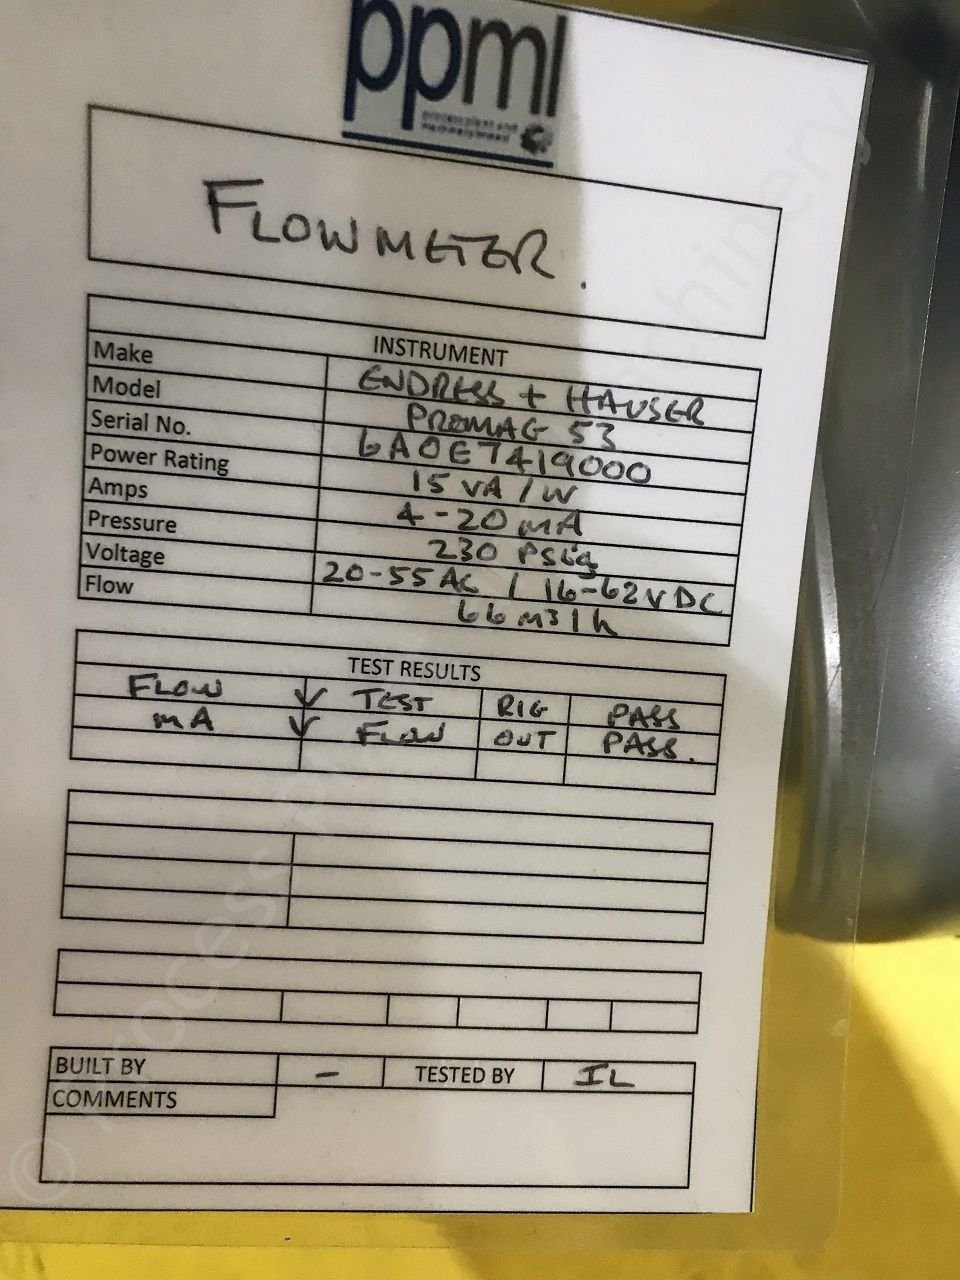 ppml
process plant and
machinery limited
FLOWMETER.
INSTRUMENT
Make ENDRESS + HAUSER
Model PROMAG 53
Serial No. 6A0E7419000
Power Rating 15 VA / W
Amps 4-20 mA
Pressure 230 PSig
Voltage 20-55 AC / 16-62V DC
Flow 66 m3/h
TEST RESULTS
FLOW ✓ TEST RIG PASS
mA ✓ FLOW OUT PASS.
BUILT BY - TESTED BY IL
COMMENTS